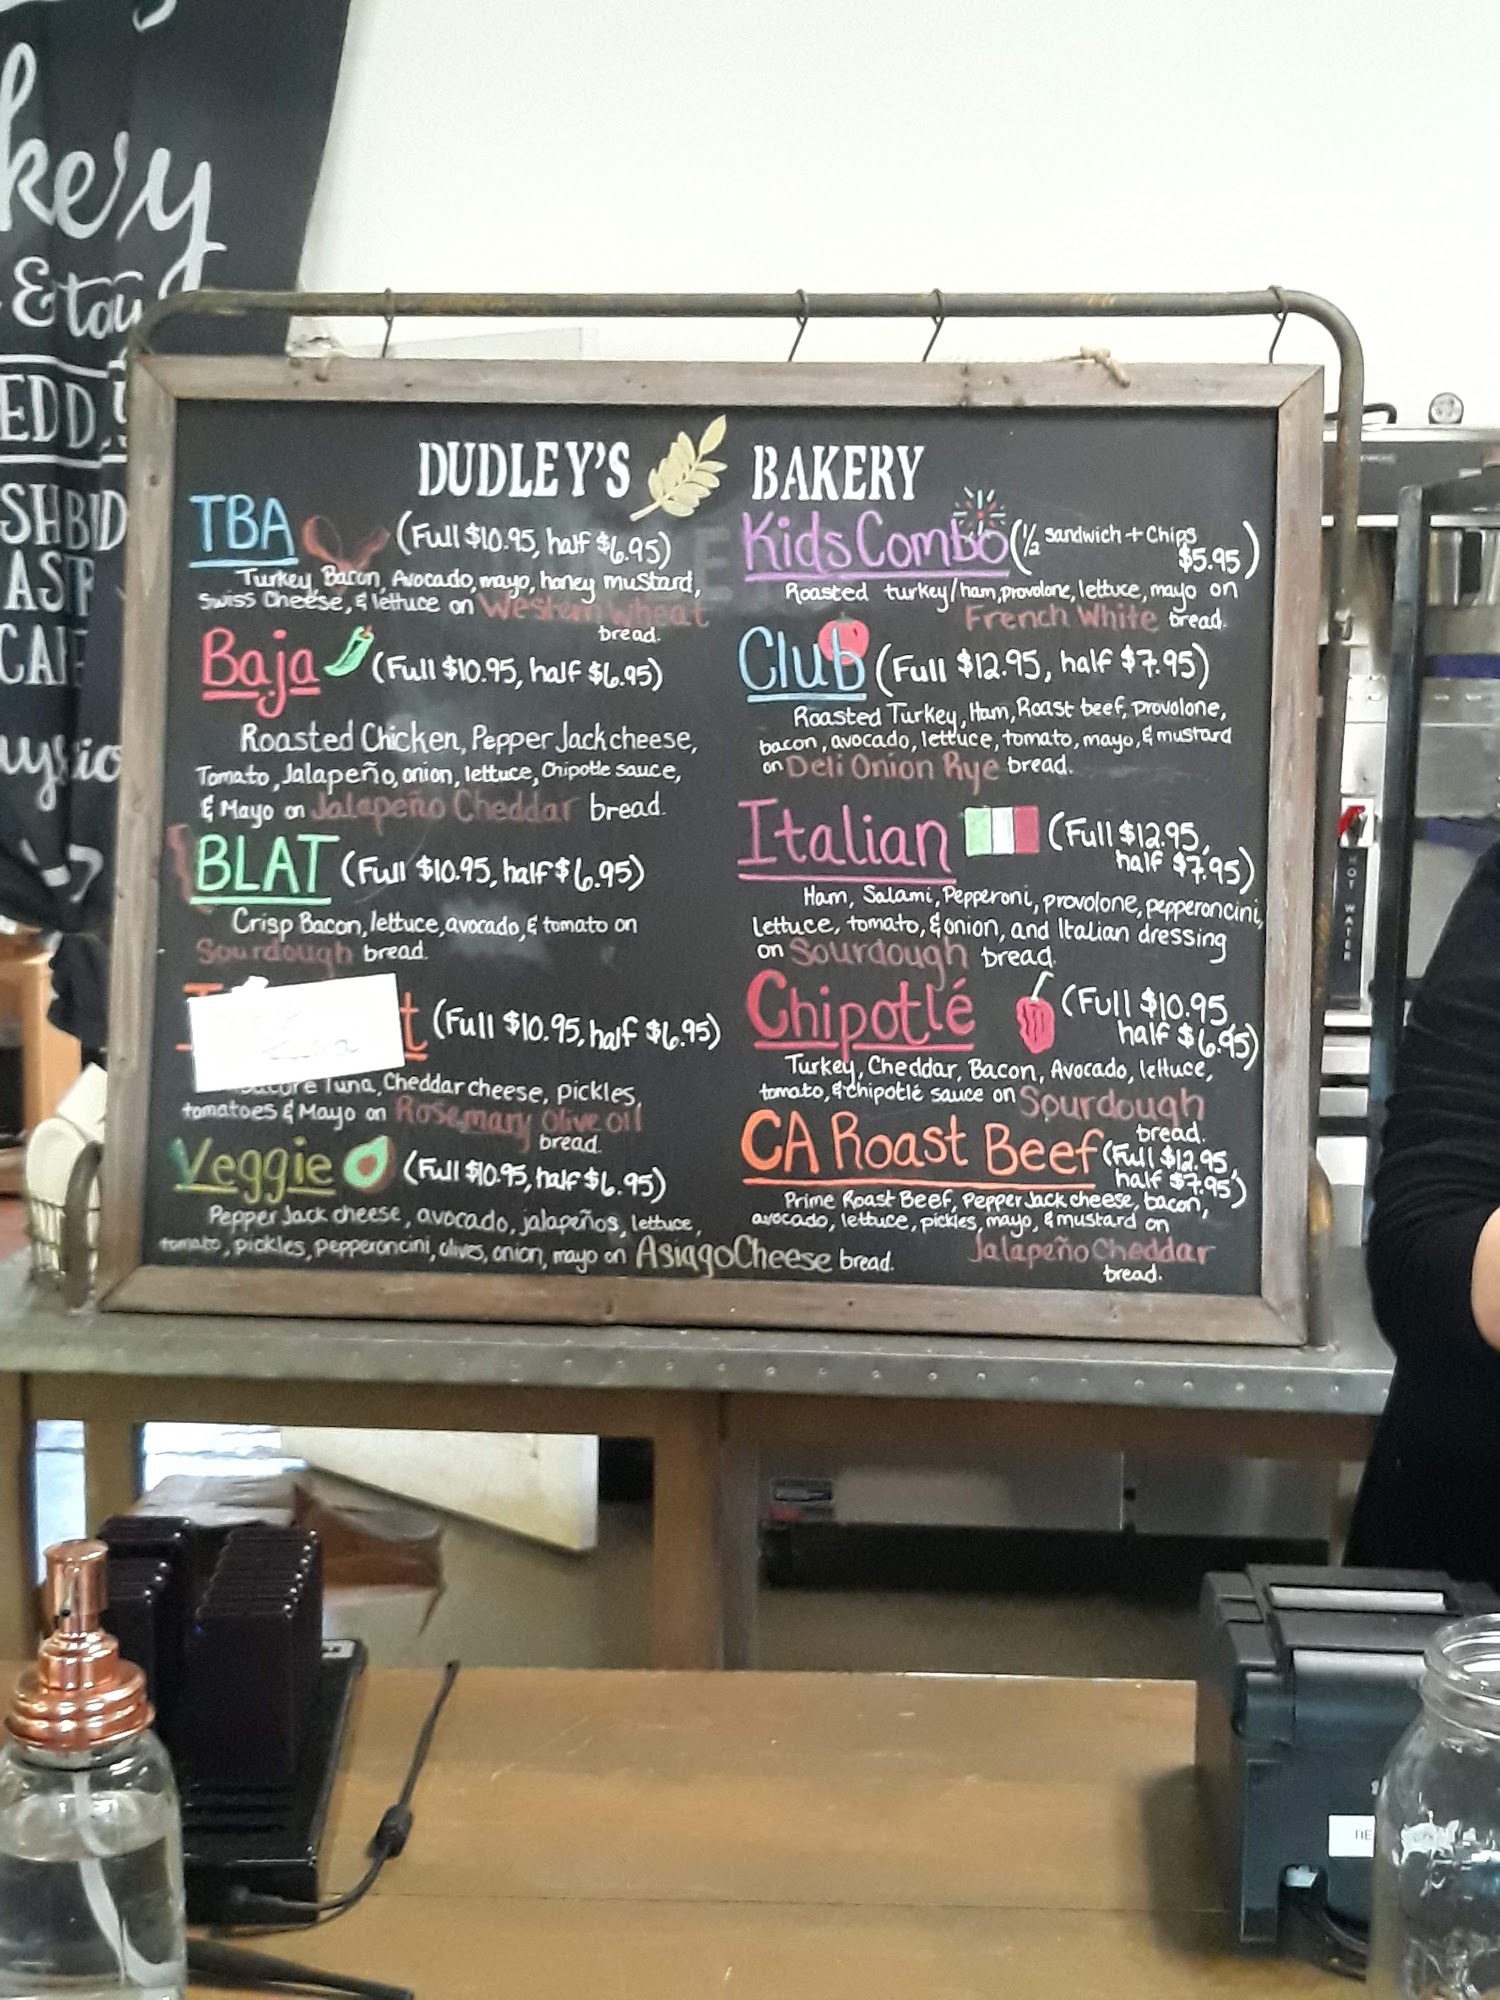 DUDLEY'S BAKERY
TBA (Full $10.95, half $6.95)
Turkey, Bacon, Avocado, mayo, honey mustard,
Swiss Cheese, & lettuce on Western Wheat
bread.
Baja (Full $10.95, half $6.95)
Roasted Chicken, Pepper Jack cheese,
Tomato, Jalapeño, onion, lettuce, Chipotle sauce,
& Mayo on Jalapeño Cheddar bread.
BLAT (Full $10.95, half $6.95)
Crisp Bacon, lettuce, avocado, & tomato on
Sourdough bread.
(Full $10.95, half $6.95)
Tuna, Cheddar cheese, pickles,
tomatoes & Mayo on Rosemary Olive oil
bread.
Veggie (Full $10.95, half $6.95)
Pepper Jack cheese, avocado, jalapeños, lettuce,
tomato, pickles, pepperoncini, olives, onion, mayo on Asiago Cheese bread.
Kids Combo (½ sandwich + Chips
$5.95)
Roasted turkey/ham, provolone, lettuce, mayo on
French White bread.
Club (Full $12.95, half $7.95)
Roasted Turkey, Ham, Roast beef, provolone,
bacon, avocado, lettuce, tomato, mayo, & mustard
on Deli Onion Rye bread.
Italian (Full $12.95,
half $7.95)
Ham, Salami, Pepperoni, provolone, pepperoncini,
lettuce, tomato, & onion, and Italian dressing
on Sourdough bread.
Chipotlé (Full $10.95
half $6.95)
Turkey, Cheddar, Bacon, Avocado, lettuce,
tomato, & chipotlé sauce on Sourdough
bread.
CA Roast Beef (Full $12.95,
half $7.95)
Prime Roast Beef, Pepper Jack cheese, bacon,
avocado, lettuce, pickles, mayo, & mustard on
Jalapeño Cheddar
bread.
HOT WATER